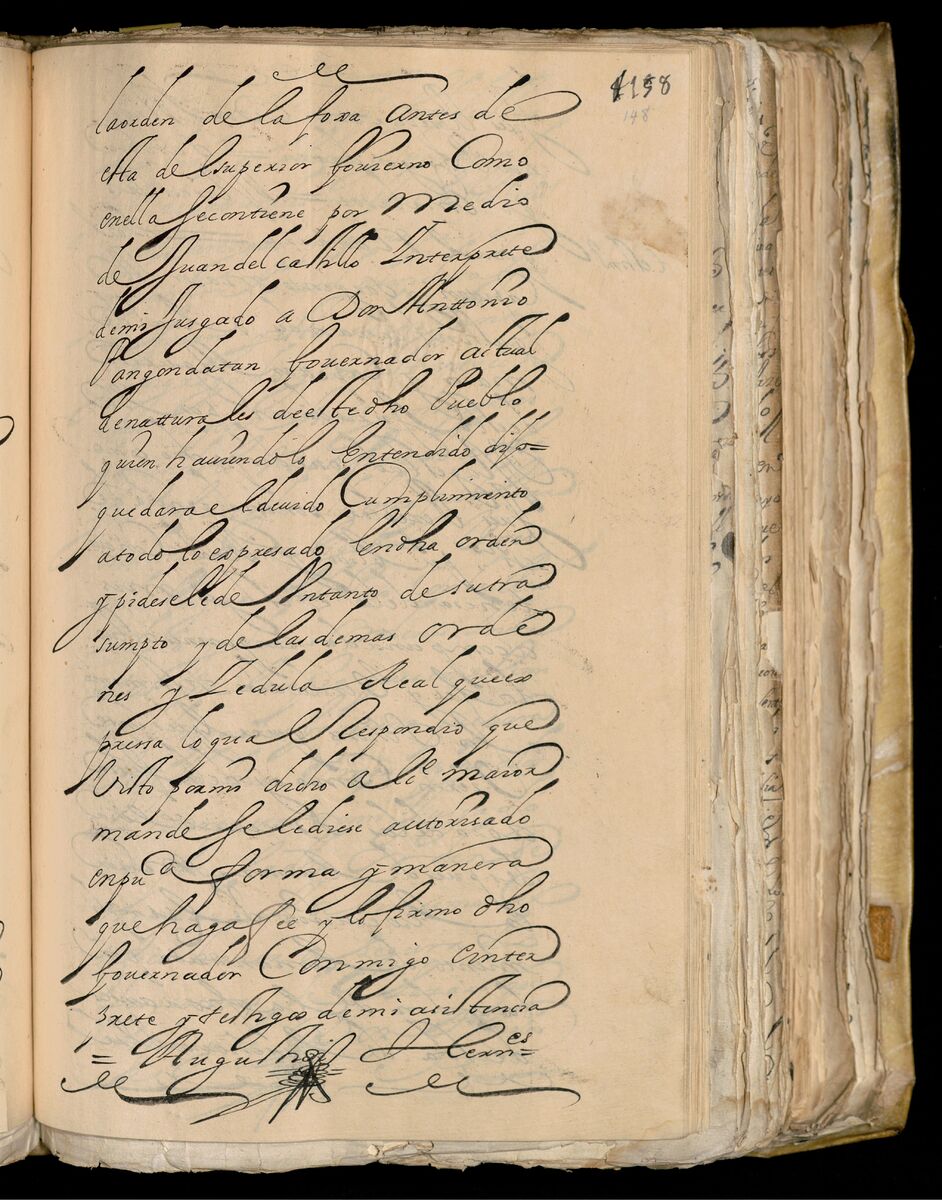 1158
148
la orden de la foxa Antes de
esta del superior Govierno Como
enella se contiene por Medio
de Juan del castillo Interprete
de mi Jusgado a Don Anttonio
Pangondatan Governador actual
de natturales de este dho Pueblo
quien haviendolo Entendido dijo=
que dara el devido Cumplimiento
a todo lo expresado En dha orden
y pide se le de Un tanto de su tra
sumpto y de las demas ordē
nes y Zedula Real que ex
pressa lo qual Respondio que
Visto por mi dicho Alce maior
mande se le diese autorisado
en puca forma y manera
que haga fee y lo firmo dho
Governador Conmigo e inter
prete y testigos de mi asistencia
= Augustin